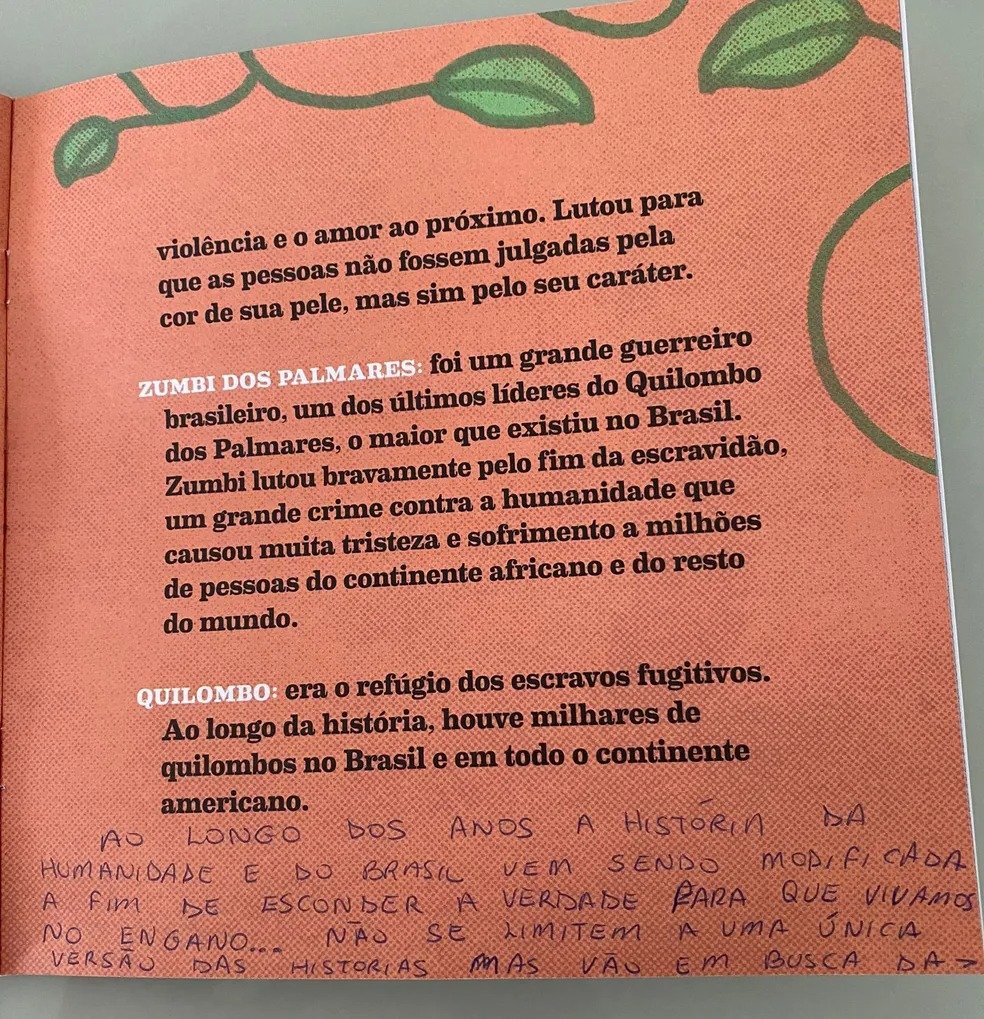 violência e o amor ao próximo. Lutou para
que as pessoas não fossem julgadas pela
cor de sua pele, mas sim pelo seu caráter.
ZUMBI DOS PALMARES: foi um grande guerreiro
brasileiro, um dos últimos líderes do Quilombo
dos Palmares, o maior que existiu no Brasil.
Zumbi lutou bravamente pelo fim da escravidão,
um grande crime contra a humanidade que
causou muita tristeza e sofrimento a milhões
de pessoas do continente africano e do resto
do mundo.
QUILOMBO: era o refúgio dos escravos fugitivos.
Ao longo da história, houve milhares de
quilombos no Brasil e em todo o continente
americano.
AO LONGO DOS ANOS A HISTÓRIA DA
HUMANIDADE E DO BRASIL VEM SENDO MODIFICADA
A FIM DE ESCONDER A VERDADE PARA QUE VIVAMOS
NO ENGANO... NÃO SE LIMITEM A UMA ÚNICA
VERSÃO DAS HISTORIAS MAS VÃO EM BUSCA DA →